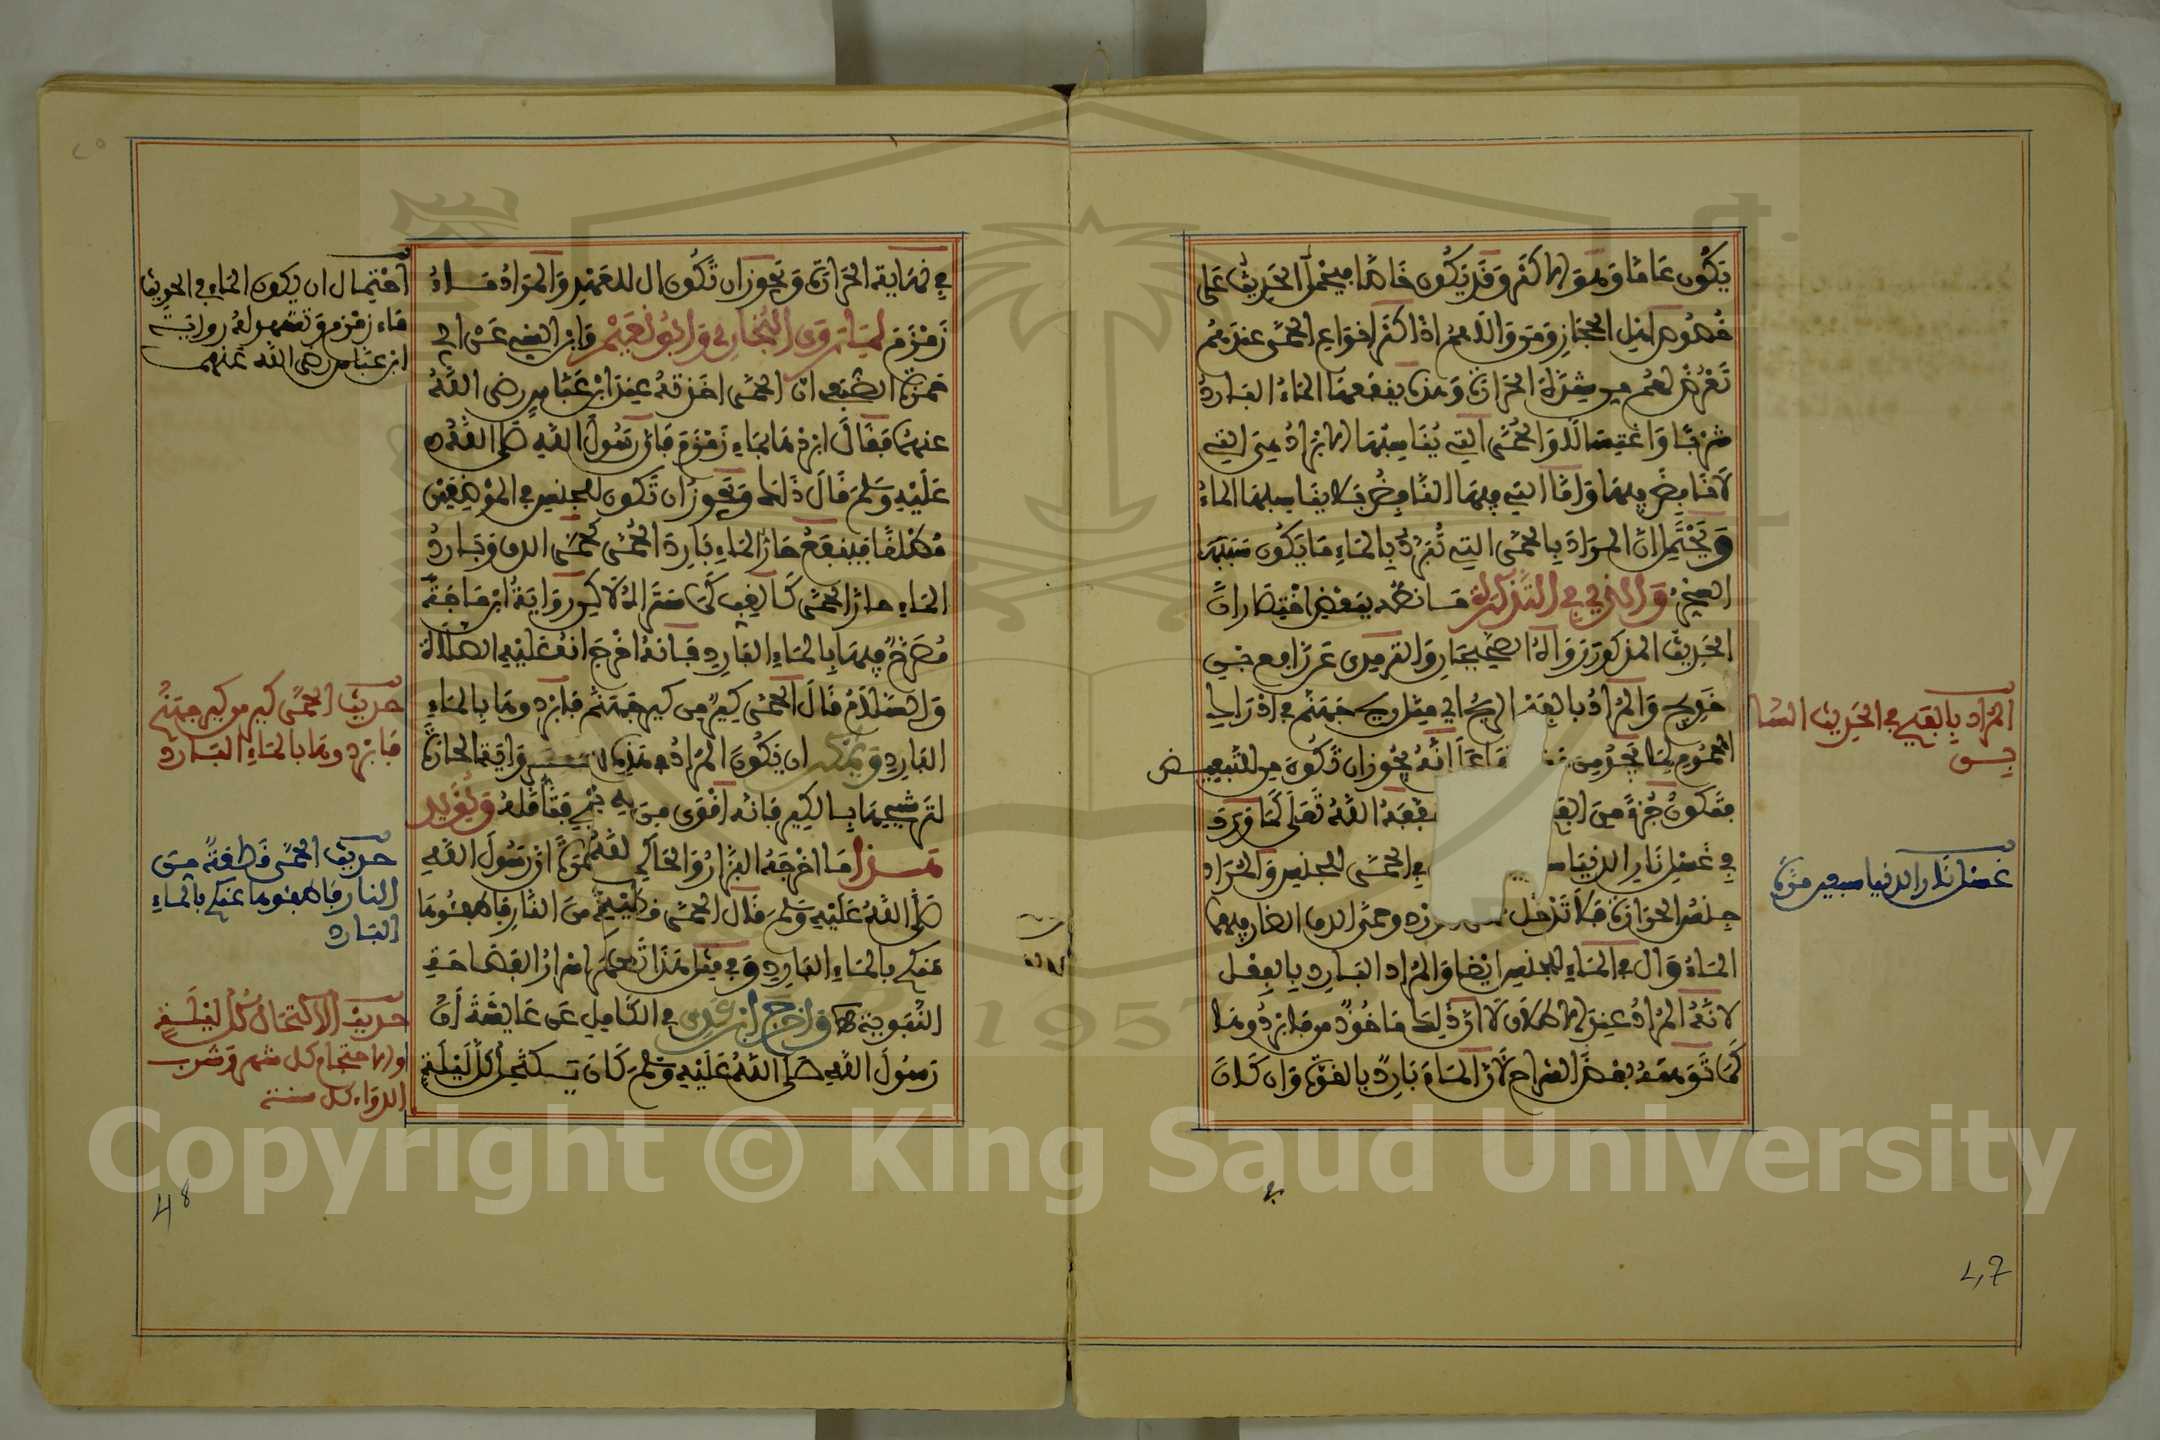 يكون عاما وهو الاكثر وقد يكون خاصا فيحمل الحديث على
خصوص اهل الحجاز ومن والاهم اذ اكثر انواع الحمى عندهم
تعرض لهم من شدة الحرارة وهذه ينفعها الماء البارد
شربا واغتسالا والحمى التي يناسبها الابراد هي التي
لا نافض فيها واما التي فيها النافض فلا يناسبها الماء
ويحتمل ان المراد بالحمى التي تبرد بالماء ما يكون سببها
العين والذي في التذكرة ما نصه ببعض اختصار ان
الحديث المذكور رواه الصحيحان والترمذي عن رافع بن
خديج والمراد بالفيح الريح اي مثل ريح جهنم في اذراب
المحموم لما يجد من انه يجوز ان تكون من للتبعيض
فتكون جزءا من الله تعلى كما ورد
في غسل نار الدنيا في الحمى للجنس والمراد
جنس الحرارة فلا تدخل وحمى الدق الضار فيها
الماء وال في الماء للجنس ايضا والمراد البارد بالفعل
لانه المراد عند الاطلاق لا ان ذلك ماخوذ من فابردوها
كما توهمه بعض الشراح لان الماء بارد بالقوة وان كان
المراد بالفيح في الحديث السابق
غسل نار الدنيا سبعين مرة
47
في نهاية الحرارة ويجوز ان تكون ال للعهد والمراد ماء
زمزم لما روى البخاري وابو نعيم وابن السني عن ابي
حمزة الضبعي ان الحمى اخذته عند ابن عباس رضي الله
عنهما فقال ابردها بماء زمزم فان رسول الله صلى الله
عليه وسلم قال ذلك ويجوز ان تكون للجنس في الموضعين
مطلقا فينفع حار الماء بارد الحمى كحمى الدق وبارد
الماء حار الحمى كالغب لكن رواية ابن ماجة
مصرح فيها بالماء البارد فانه اخرج انه عليه الصلاة
والسلام قال الحمى كير من كير جهنم فابردوها بالماء
البارد ويمكن ان يكون المراد بهذه الحارة
لتشبيهها بالكير فانه اقوى من فيح فتامله ويؤيد
هذا ما اخرجه البزار والحاكم عن سمرة ان رسول الله
صلى الله عليه وسلم قال الحمى قطعة من النار فاطفئوها
عنكم بالماء البارد وفي مثل هذا تظهر اسرار الفصاحة
النبوية واخرج ابن عدي في الكامل عن عايشة ان
رسول الله صلى الله عليه وسلم كان يكتحل كل ليلة
احتمال ان يكون الماء في الحديث
ماء زمزم وتشهد له رواية
ابن عباس رضى الله عنهما
حديث الحمى كير من كير جهنم
فابردوها بالماء البارد
حديث الحمى قطعة من
النار فاطفئوها عنكم بالماء
البارد
حديث الاكتحال كل ليلة
والاحتجام كل شهر وشرب
الدواء كل سنة
48
1957
Copyright © King Saud University